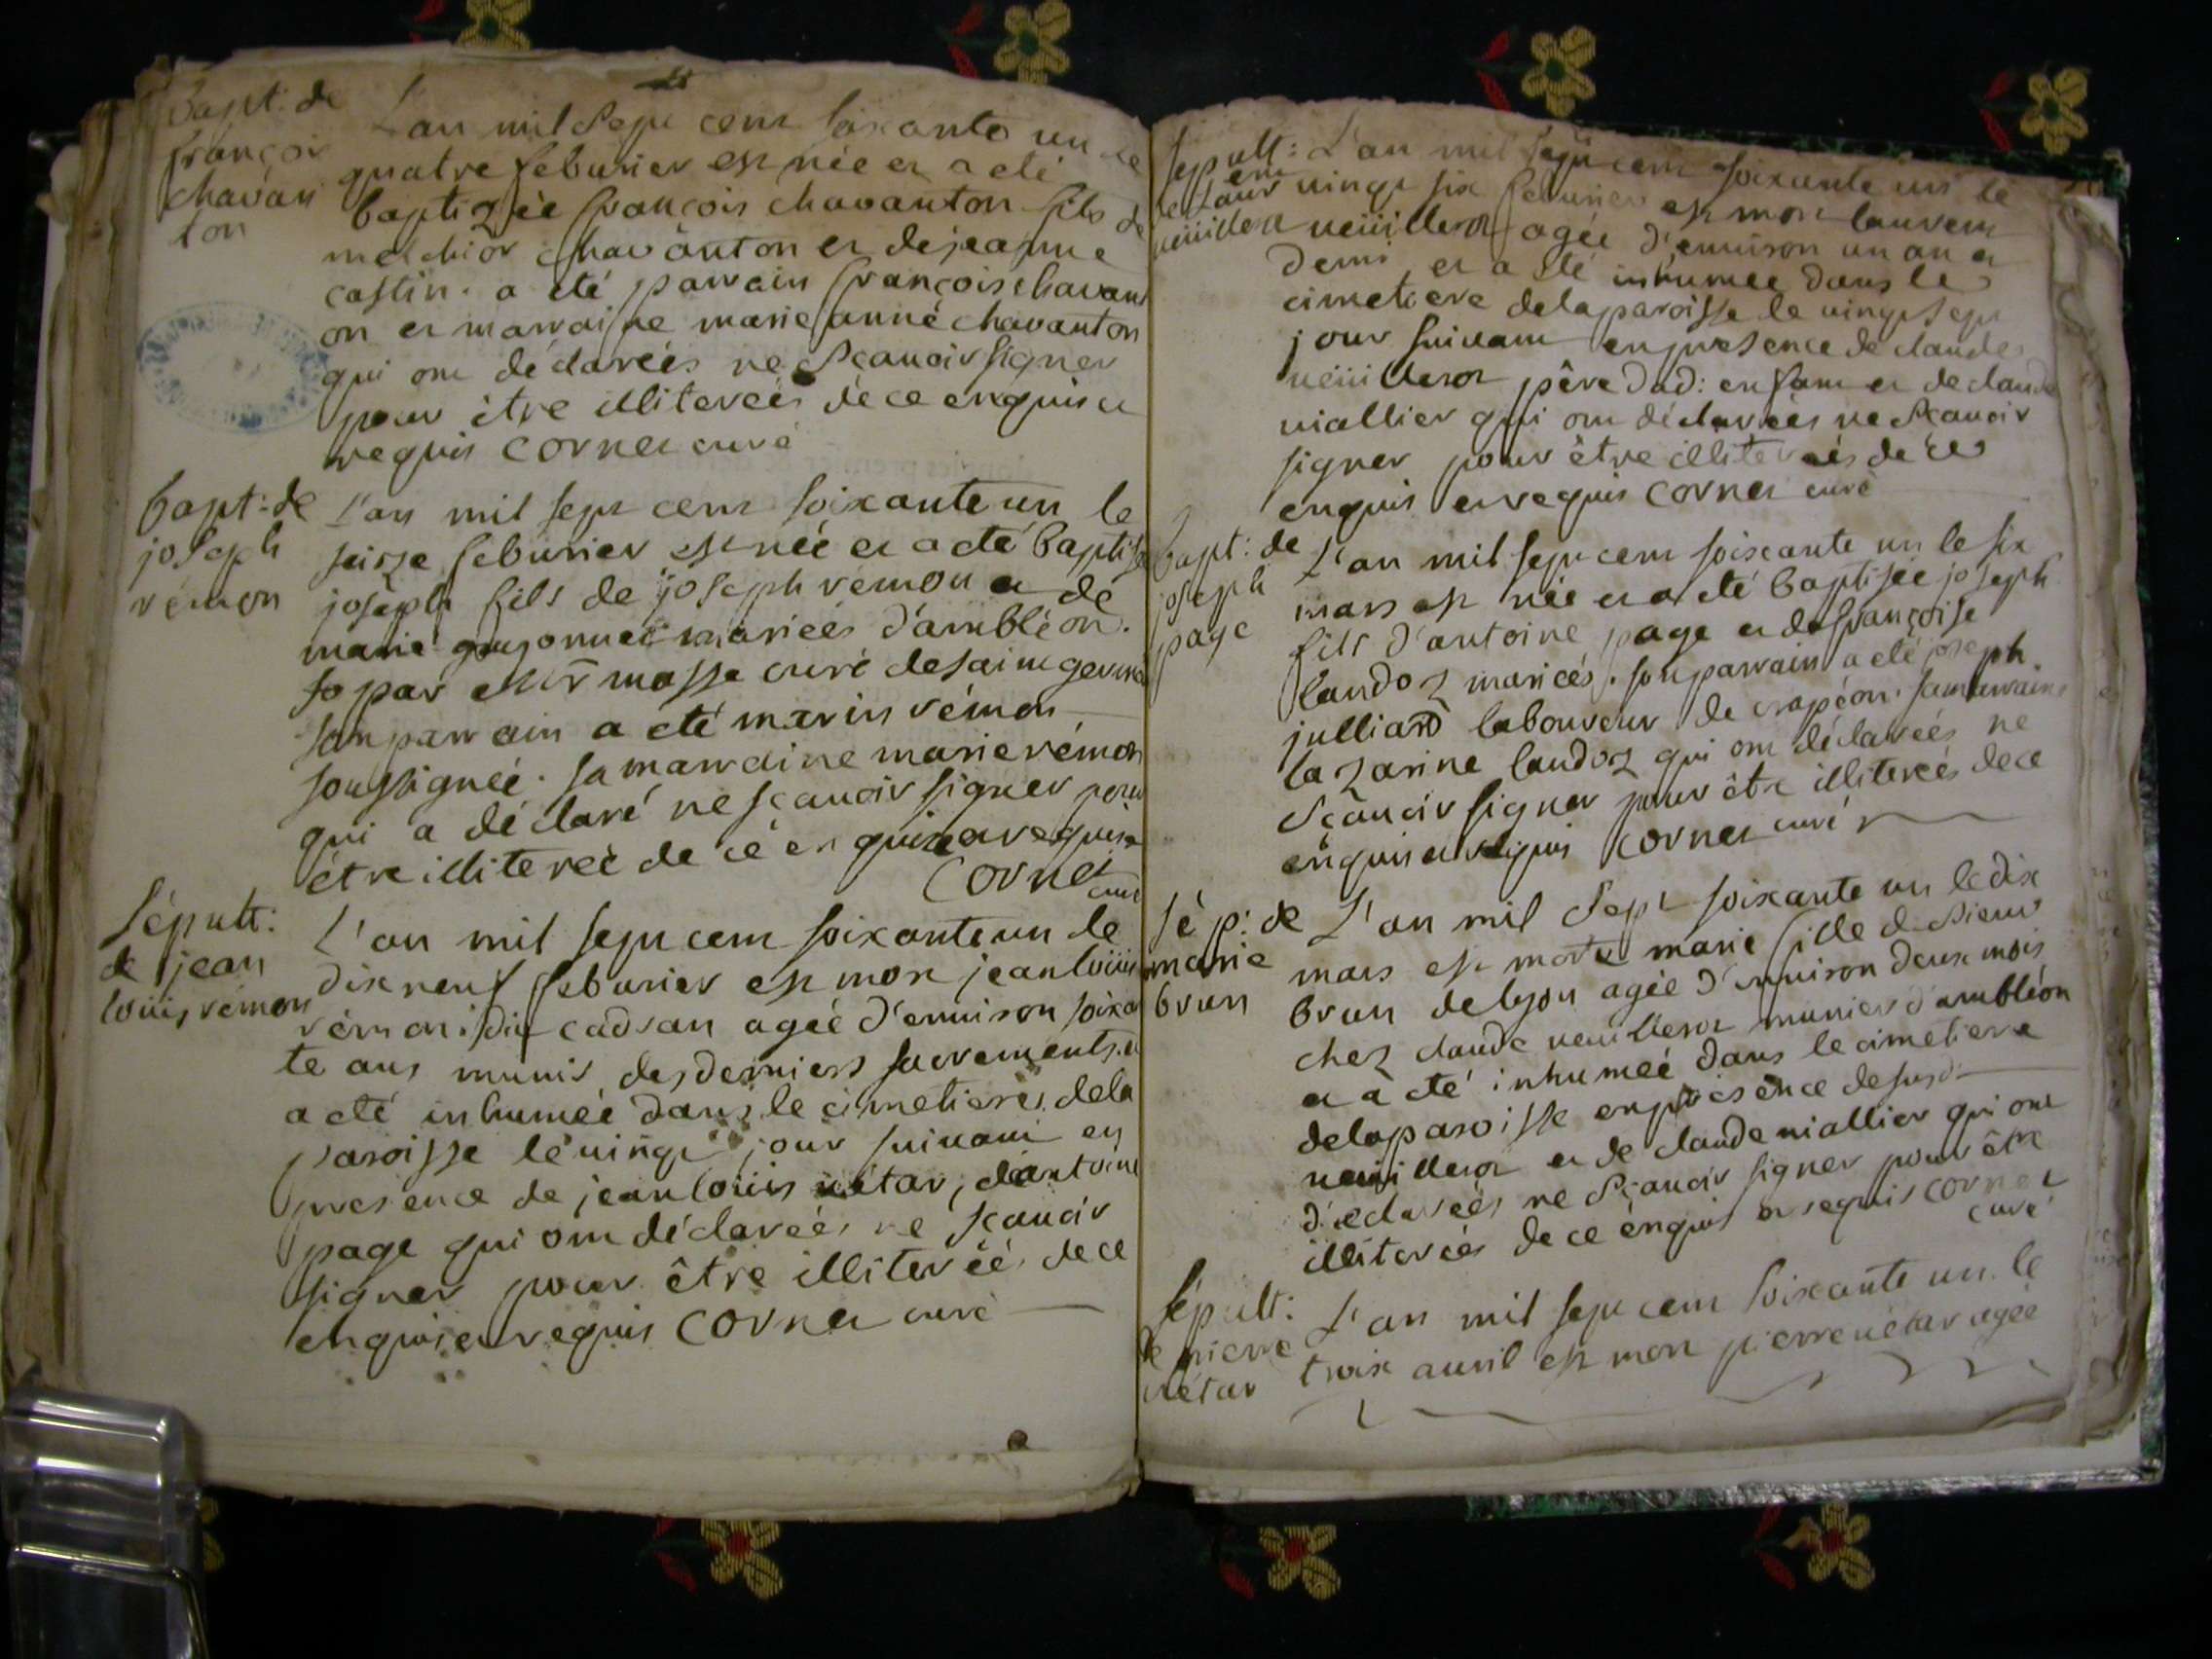 bapt: de
françois
chavan
ton
L'an mil sept cent soixante un le
quatre feburier est née et a eté
baptizée françois chavanton fils de
melchior chavanton et de jeanne
castin. a eté parrain françois chavant
on et marraine marie anne chavanton
qui ont déclarées ne sçauoir signer
pour être illiterées de ce enquis et
requis cornet curé
bapt: de
joseph
rémon
L'an mil sept cent soixante un le
seizze feburier est née et a eté baptise
joseph fils de joseph rémon et de
marie mariées d'ambléon.
par masse curé de saint germa
son parrain a eté marin rémon
soussignée. sa marraine marie rémon
qui a déclaré ne sçauoir signer pour
être illiterée de ce enquise et requise
cornet
curé
sépult:
de jean
louis rémon
L'an mil sept cent soixante un le
dixneuf feburier est mort jean louis
rémon: dit cadran agée d'enuiron soixan
te ans munis des derniers sacrements. et
a eté inhumée dans le cimetiere de la
paroisse le uingt jour suiuant en
presence de jean louis uétar, d'antoine
page qui ont déclarées ne sçauoir
signer pour être illiterées de ce
enquis et requis cornet curé
sepult:
de Laur
ent
ueüilleroz
L'an mil sept cent soixante un le
uingt six feburier est mort laurent
ueüilleroz agée d'enuiron un an et
demi et a eté inhumée dans le
cimetiere de la paroisse le uingt sept
jour suiuant en presence de claude
ueüilleroz père dud: enfant et de claude
uiallier qui ont déclarées ne sçauoir
signer pour être illiterées de ce
enquis et requis cornet curé
bapt: de
joseph
page
L'an mil sept cent soixante un le six
mars est née et a eté baptisée joseph
fils d'antoine page et de françoise
landoz mariées. son parrain a eté joseph
julliard laboureur de crapéon. sa marraine
lazarine landoz qui ont déclarées ne
sçauoir signer pour être illiterées de ce
enquis et requis cornet curé
sép: de
marie
brun
L'an mil sept soixante un le dix
mars est morte marie fille de sieur
brun de lyon agée d'enuiron deux mois
chez claude ueüilleroz munier d'ambléon
et a eté inhumée dans le cimetiere
de la paroisse en presence de susd:
ueüilleroz et de claude uiallier qui ont
déclarées ne sçauoir signer pour être
illiterées de ce enquis et requis cornet
curé
sépult:
de pierre
uétar
L'an mil sept cent soixante un le
troix auril est mort pierre uétar agée